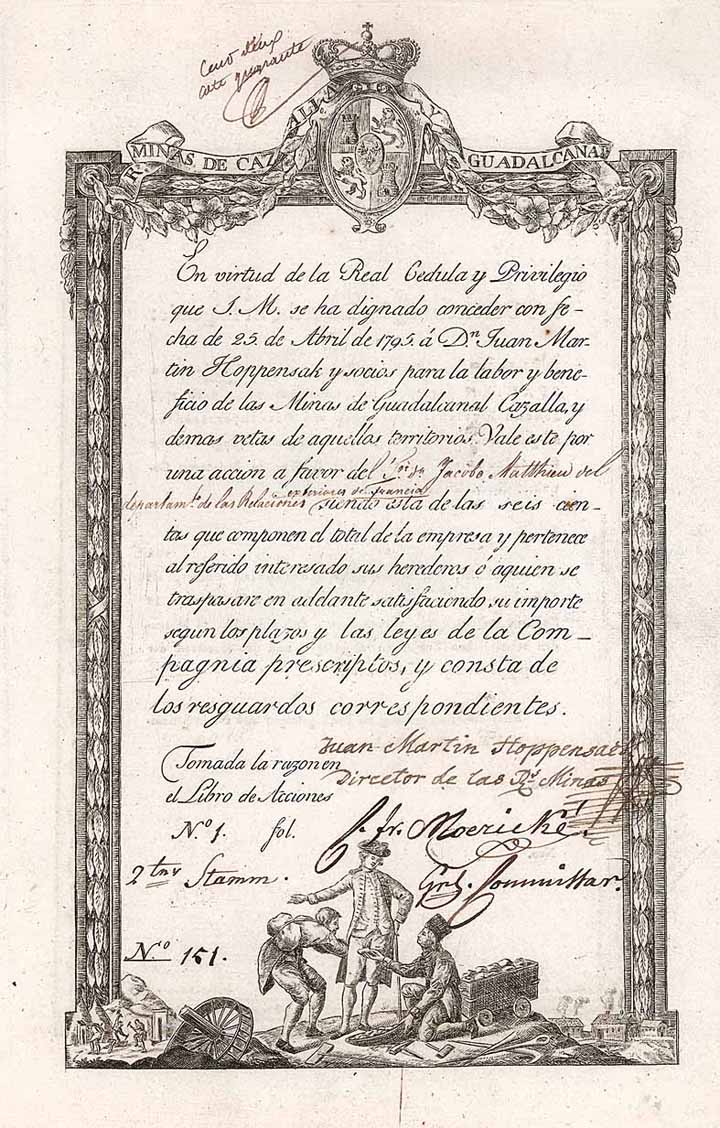 cate quarante
Rs. MINAS DE CAZALLA Y GUADALCANAL
En virtud de la Real Cedula y Privilegio
que S. M. se ha dignado conceder con fe-
cha de 25. de Abril de 1795. á Dn. Juan Mar-
tin Hoppensak y socios para la labor y bene-
ficio de las Minas de Guadalcanal Cazalla, y
demas vetas de aquellos territorios. Vale este por
una accion a favor del Jacobo Matthieu del
exteriores de francia
departamto. de las Relaciones siendo esta de las seis cien-
tas que componen el total de la empresa y pertenece
al referido interesado sus herederos ó aquien se
traspasare en adelante satisfaciendo su importe
segun los plazos y las leyes de la Com-
pagnia prescriptos, y consta de
los resguardos correspondientes.
Juan Martin Hoppensack
Tomada la razon en
Director de las Rs. Minas
el Libro de Acciones
N.o 1. fol.
J. Fr. Moericke
2 tny Stamm.
Grl. Commissar.
N.o 151.